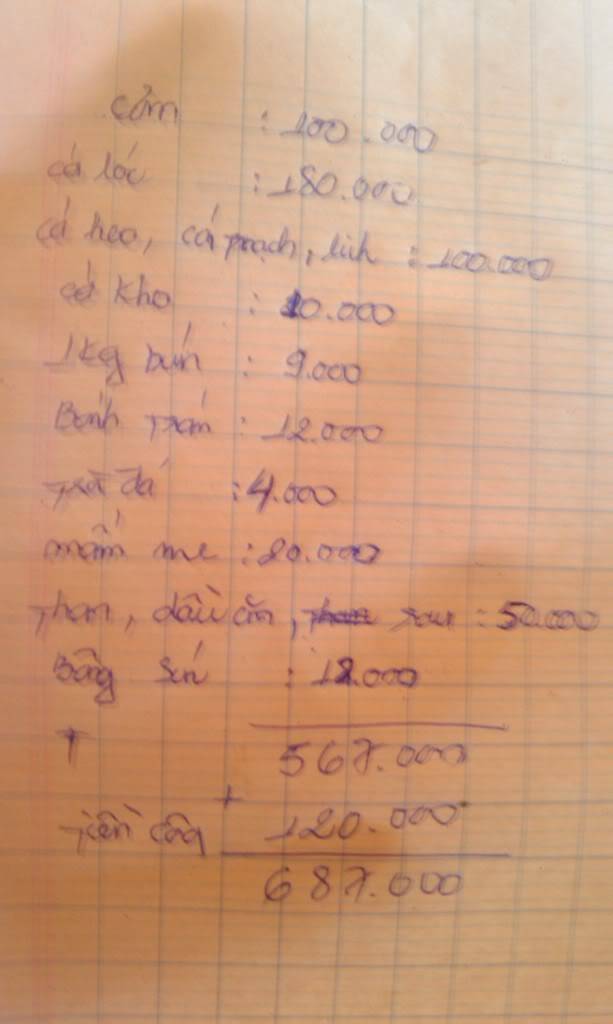 cơm : 100.000
cá lóc : 180.000
cá heo, cá trạch, lịch : 100.000
cá kho : 80.000
1kg bún : 9.000
Bánh tráng : 12.000
trà đá : 4.000
mắm me : 20.000
than, dầu ăn, rau : 50.000
Bông súng : 12.000
T 567.000
+
tiền công 120.000
687.000